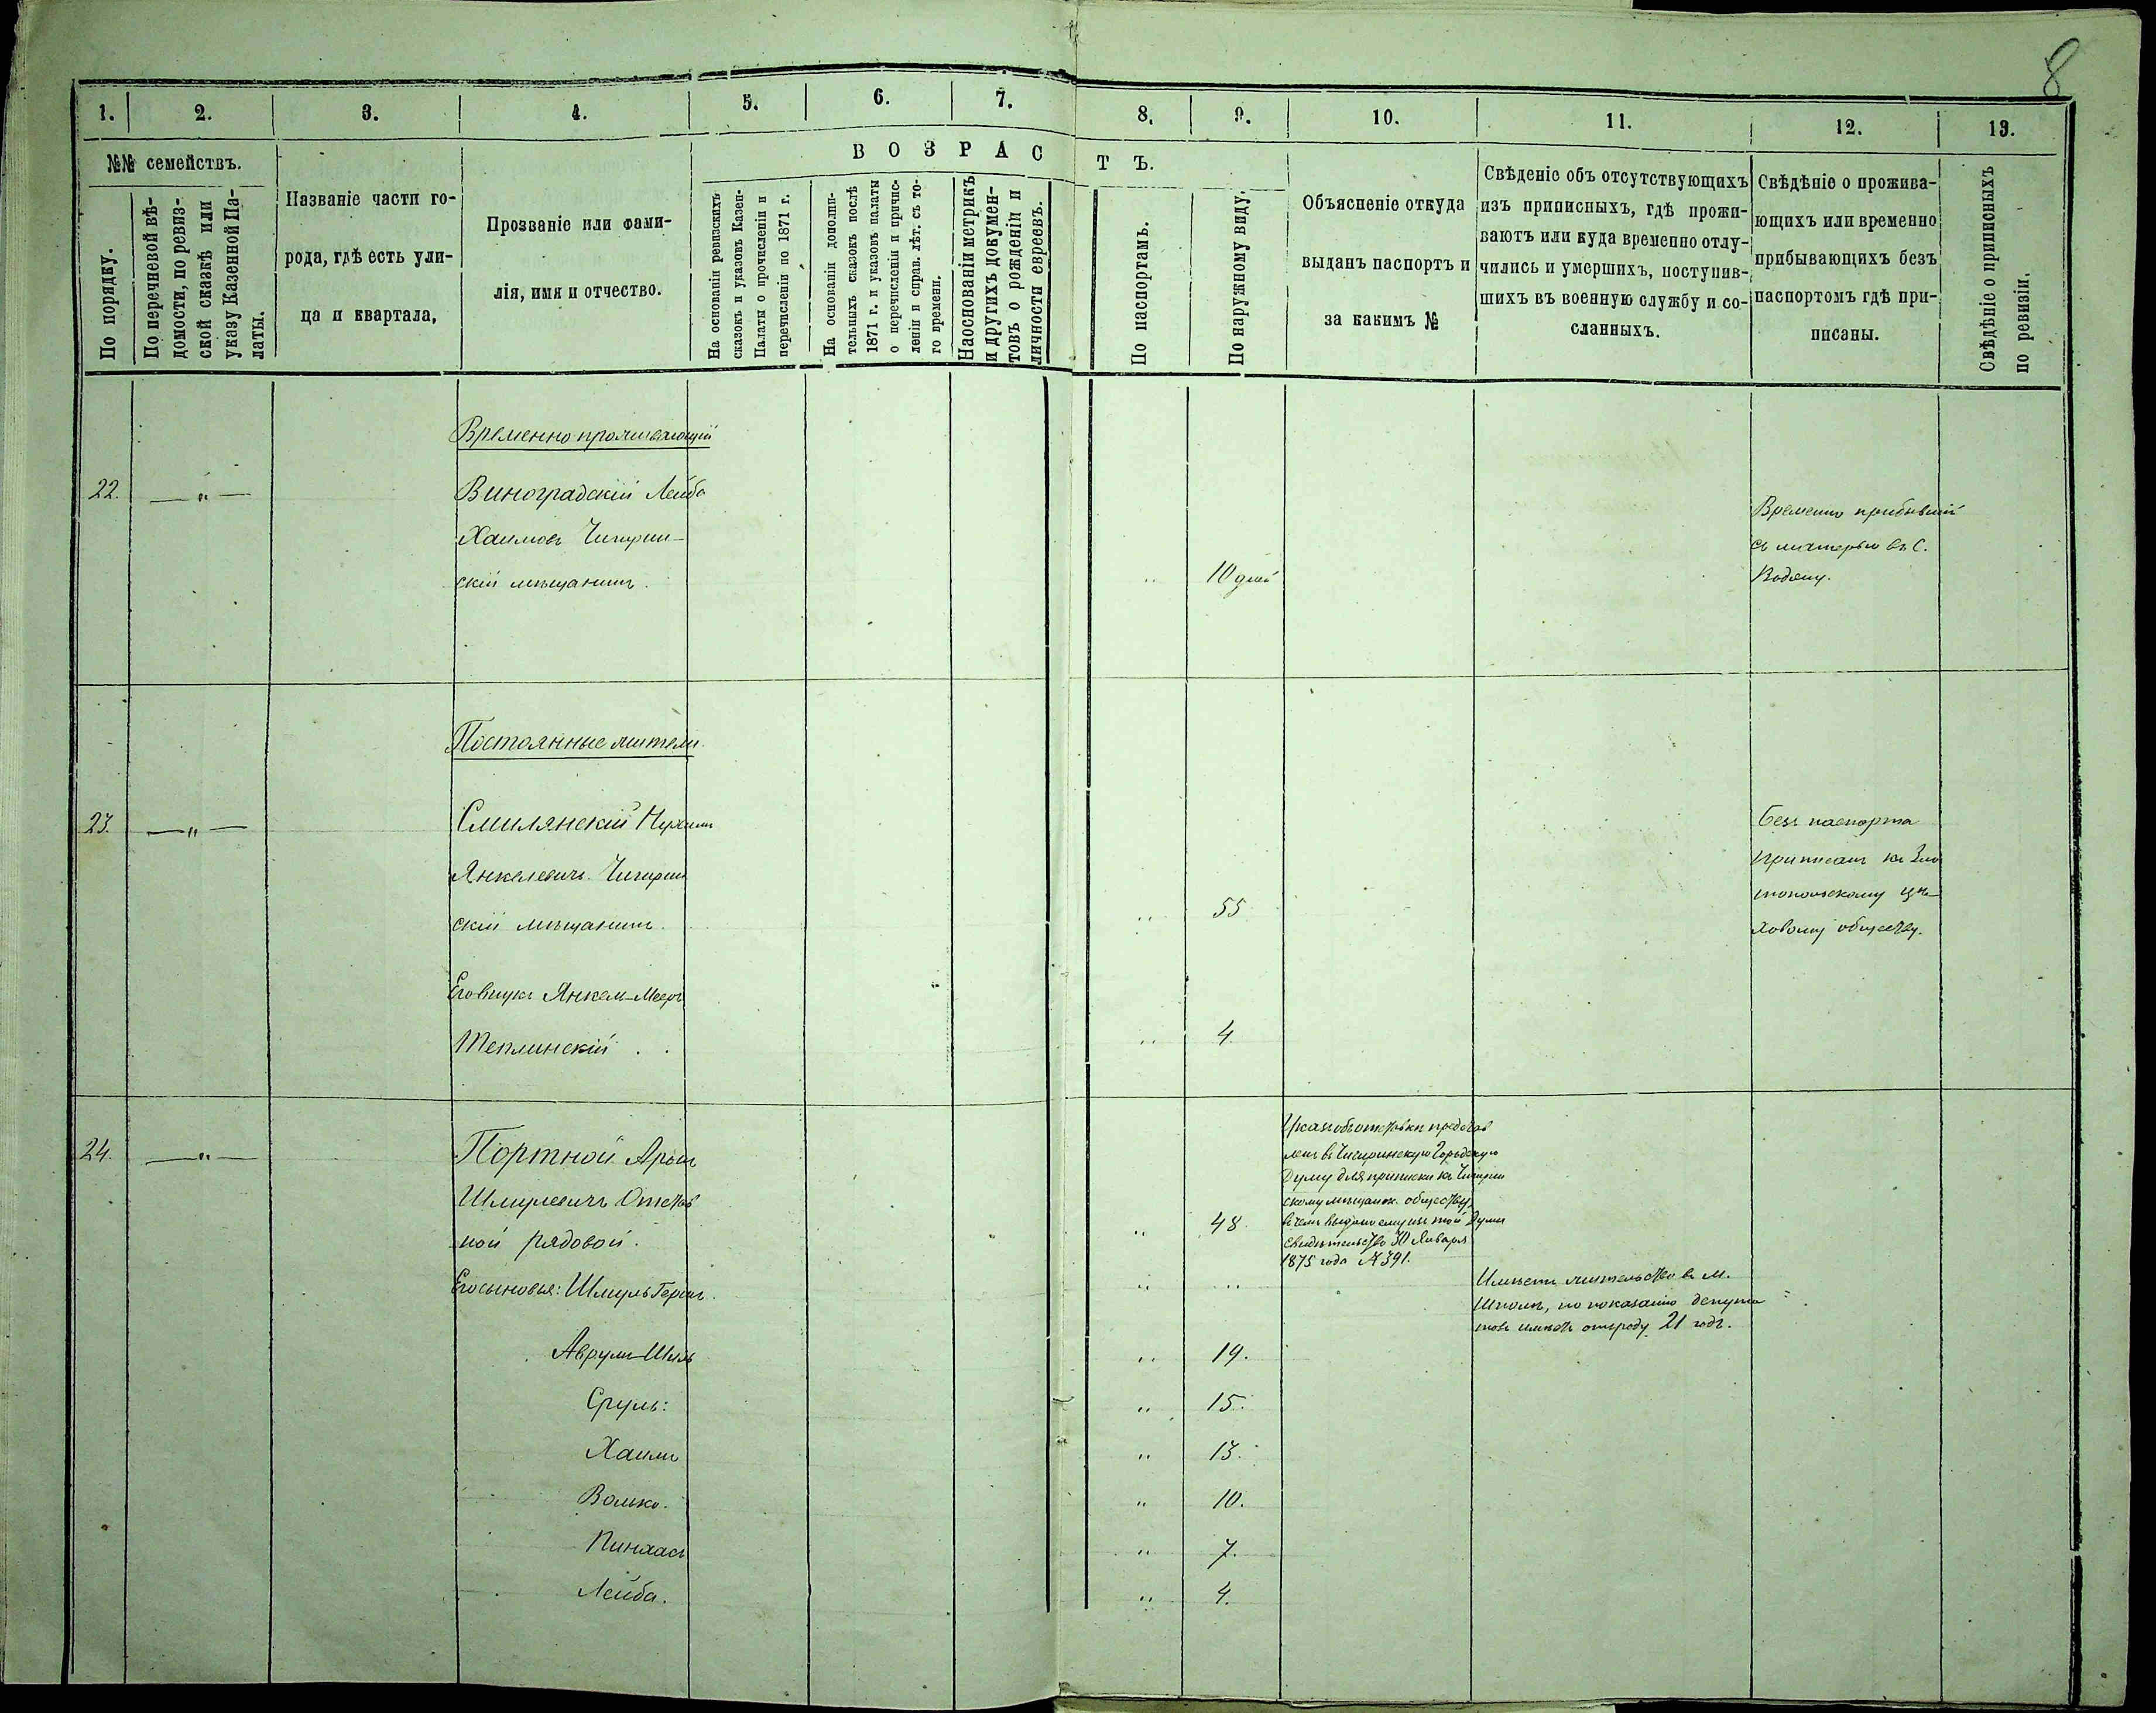 8
1. 2. 3. 4. 5. 6. 7. 8. 9. 10. 11. 12. 13.
№№ семействъ.
По порядку.
По перечневой вѣ-
домости, по ревиз-
ской сказкѣ или
указу Казенной Па-
латы.
Названіе части го-
рода, гдѣ есть ули-
ца и квартала,
Прозваніе или фами-
лія, имя и отчество.
ВОЗРАСТЪ.
На основаніи ревизскихъ
сказокъ и указовъ Казен-
Палаты о прочисленіи и
перечисленіи по 1871 г.
На основаніи дополни-
тельныхъ сказокъ послѣ
1871 г. и указовъ палаты
о перечисленіи и причис-
леніи и справ. лѣт. съ то-
го времени.
На основаніи метрикъ
и другихъ докумен-
товъ о рожденіи и
личности евреевъ.
По паспортамъ.
По наружному виду.
Объясненіе откуда
выданъ паспортъ и
за какимъ №
Свѣденіе объ отсутствующихъ
изъ приписныхъ, гдѣ прожи-
ваютъ или куда временно отлу-
чились и умершихъ, поступив-
шихъ въ военную службу и со-
сланныхъ.
Свѣдѣніе о прожива-
ющихъ или временно
прибывающихъ безъ
паспортомъ гдѣ при-
писаны.
Свѣдѣніе о приписныхъ
по ревизіи.
Временно проживающій
22. — " —
Виноградскій Лейба
Хаимовъ Чигирин-
скій мѣщанинъ.
" 10 дней
Временно прибывшій
съ матерью въ с.
Водяну.
Постоянные жители.
23. — " —
Смилянскій Нухимъ
Янкелевичъ Чигирин
скій мѣщанинъ.
" 55
безъ паспорта
приписанъ къ Зла
топольскому цѣ-
ховому обществу.
Его внукъ Янкел-Мееръ
Теплинскій . .
" 4.
24. — " —
Портной Аронъ
Шмулевичъ Отстав
ной рядовой.
" 48.
Указъ объ отставкѣ представ
ленъ въ Чигиринскую Городскую
Думу для приписки къ Чигирин
скому мѣщанск. обществу
въ чемъ выдано ему изъ той Думы
свидѣтельство 30 Января
1875 года № 391.
Его сыновья: Шмуль Герш.
" "
Имѣетъ жительство въ м.
Шполѣ, по показанію депута
товъ имѣетъ отъ роду 21 годъ.
Аврум-Шиль
" 19.
Сруль:
" 15.
Хаимъ
" 13.
Волько.
" 10.
Пинхасъ
" 7.
Лейба.
" 4.